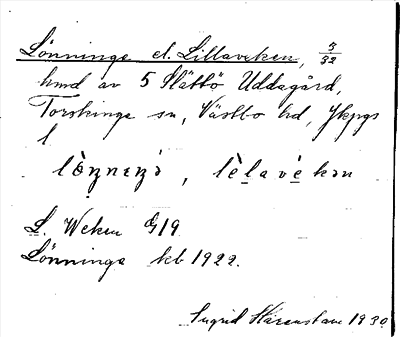 Lönninge el. Lillaveken, 3/32
hmd av 5 Slättö Uddagård,
Torskinge sn, Västbo hd, Jkpgs
l
L. Weken G19
Lönninga kb 1922.
Ingrid Härenstam 1930